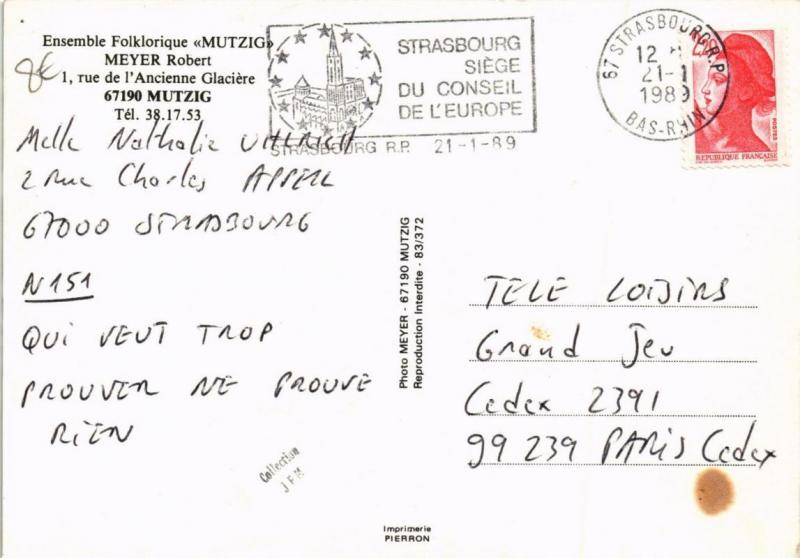 Ensemble Folklorique «MUTZIG»
MEYER Robert
1, rue de l'Ancienne Glacière
67190 MUTZIG
Tél. 38.17.53
8€
STRASBOURG
SIÈGE
DU CONSEIL
DE L'EUROPE
STRASBOURG R.P. 21-1-89
67 STRASBOURG R.P.
12
21-1
1989
BAS-RHIN
POSTES
REPUBLIQUE FRANÇAISE
Melle Nathalie
2 rue Charles APPELL
67000 STRASBOURG
N151
QUI VEUT TROP
PROUVER NE PROUVE
RIEN
Collection
Photo MEYER - 67190 MUTZIG
Reproduction Interdite - 83/372
TELE LOISIRS
Grand Jeu
Cedex 2391
99 239 PARIS Cedex
Imprimerie
PIERRON